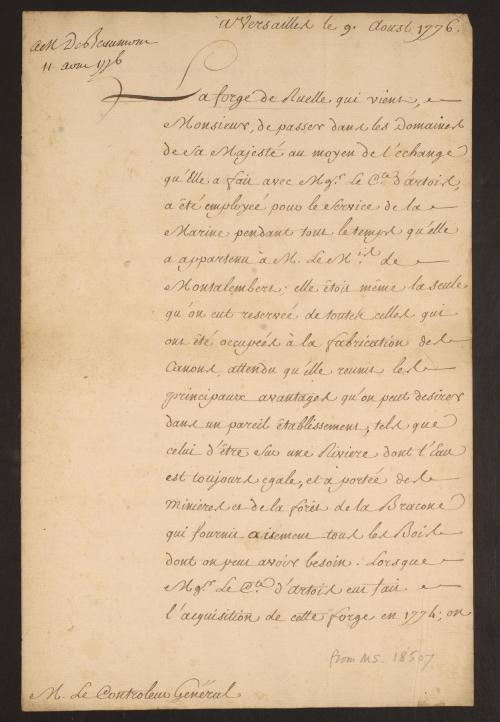 A Versailles le 9. Aoust 1776.
à M. De Beaumont
11 aout 1776
La forge de Ruelle qui vient,
Monsieur, de passer dans les Domaines
de Sa Majesté au moyen de l'échange
qu'Elle a fait avec Mgr. Le Cte. d'artois,
a été employée pour le Service de la
Marine pendant tout le temps qu'elle
a appartenu à M. Le Mis. de
Montalembert; elle étoit même la seule
qu'on eut reservée de toutes celles qui
ont été occupées à la fabrication des
Canons, attendu qu'elle reunit les
principaux avantages qu'on peut desirer
dans un pareil établissement, tels que
celui d'être sur une Riviere dont l'Eau
est toujours egale, et a portée des
minières et de la forêt de la Bracone
qui fournit aisement tous les Bois
dont on peut avoir besoin. Lorsque
Mgr. Le Cte. d'artois eut fait
l'acquisition de cette forge en 1774; on
from MS. 18507
M. Le Controleur Général